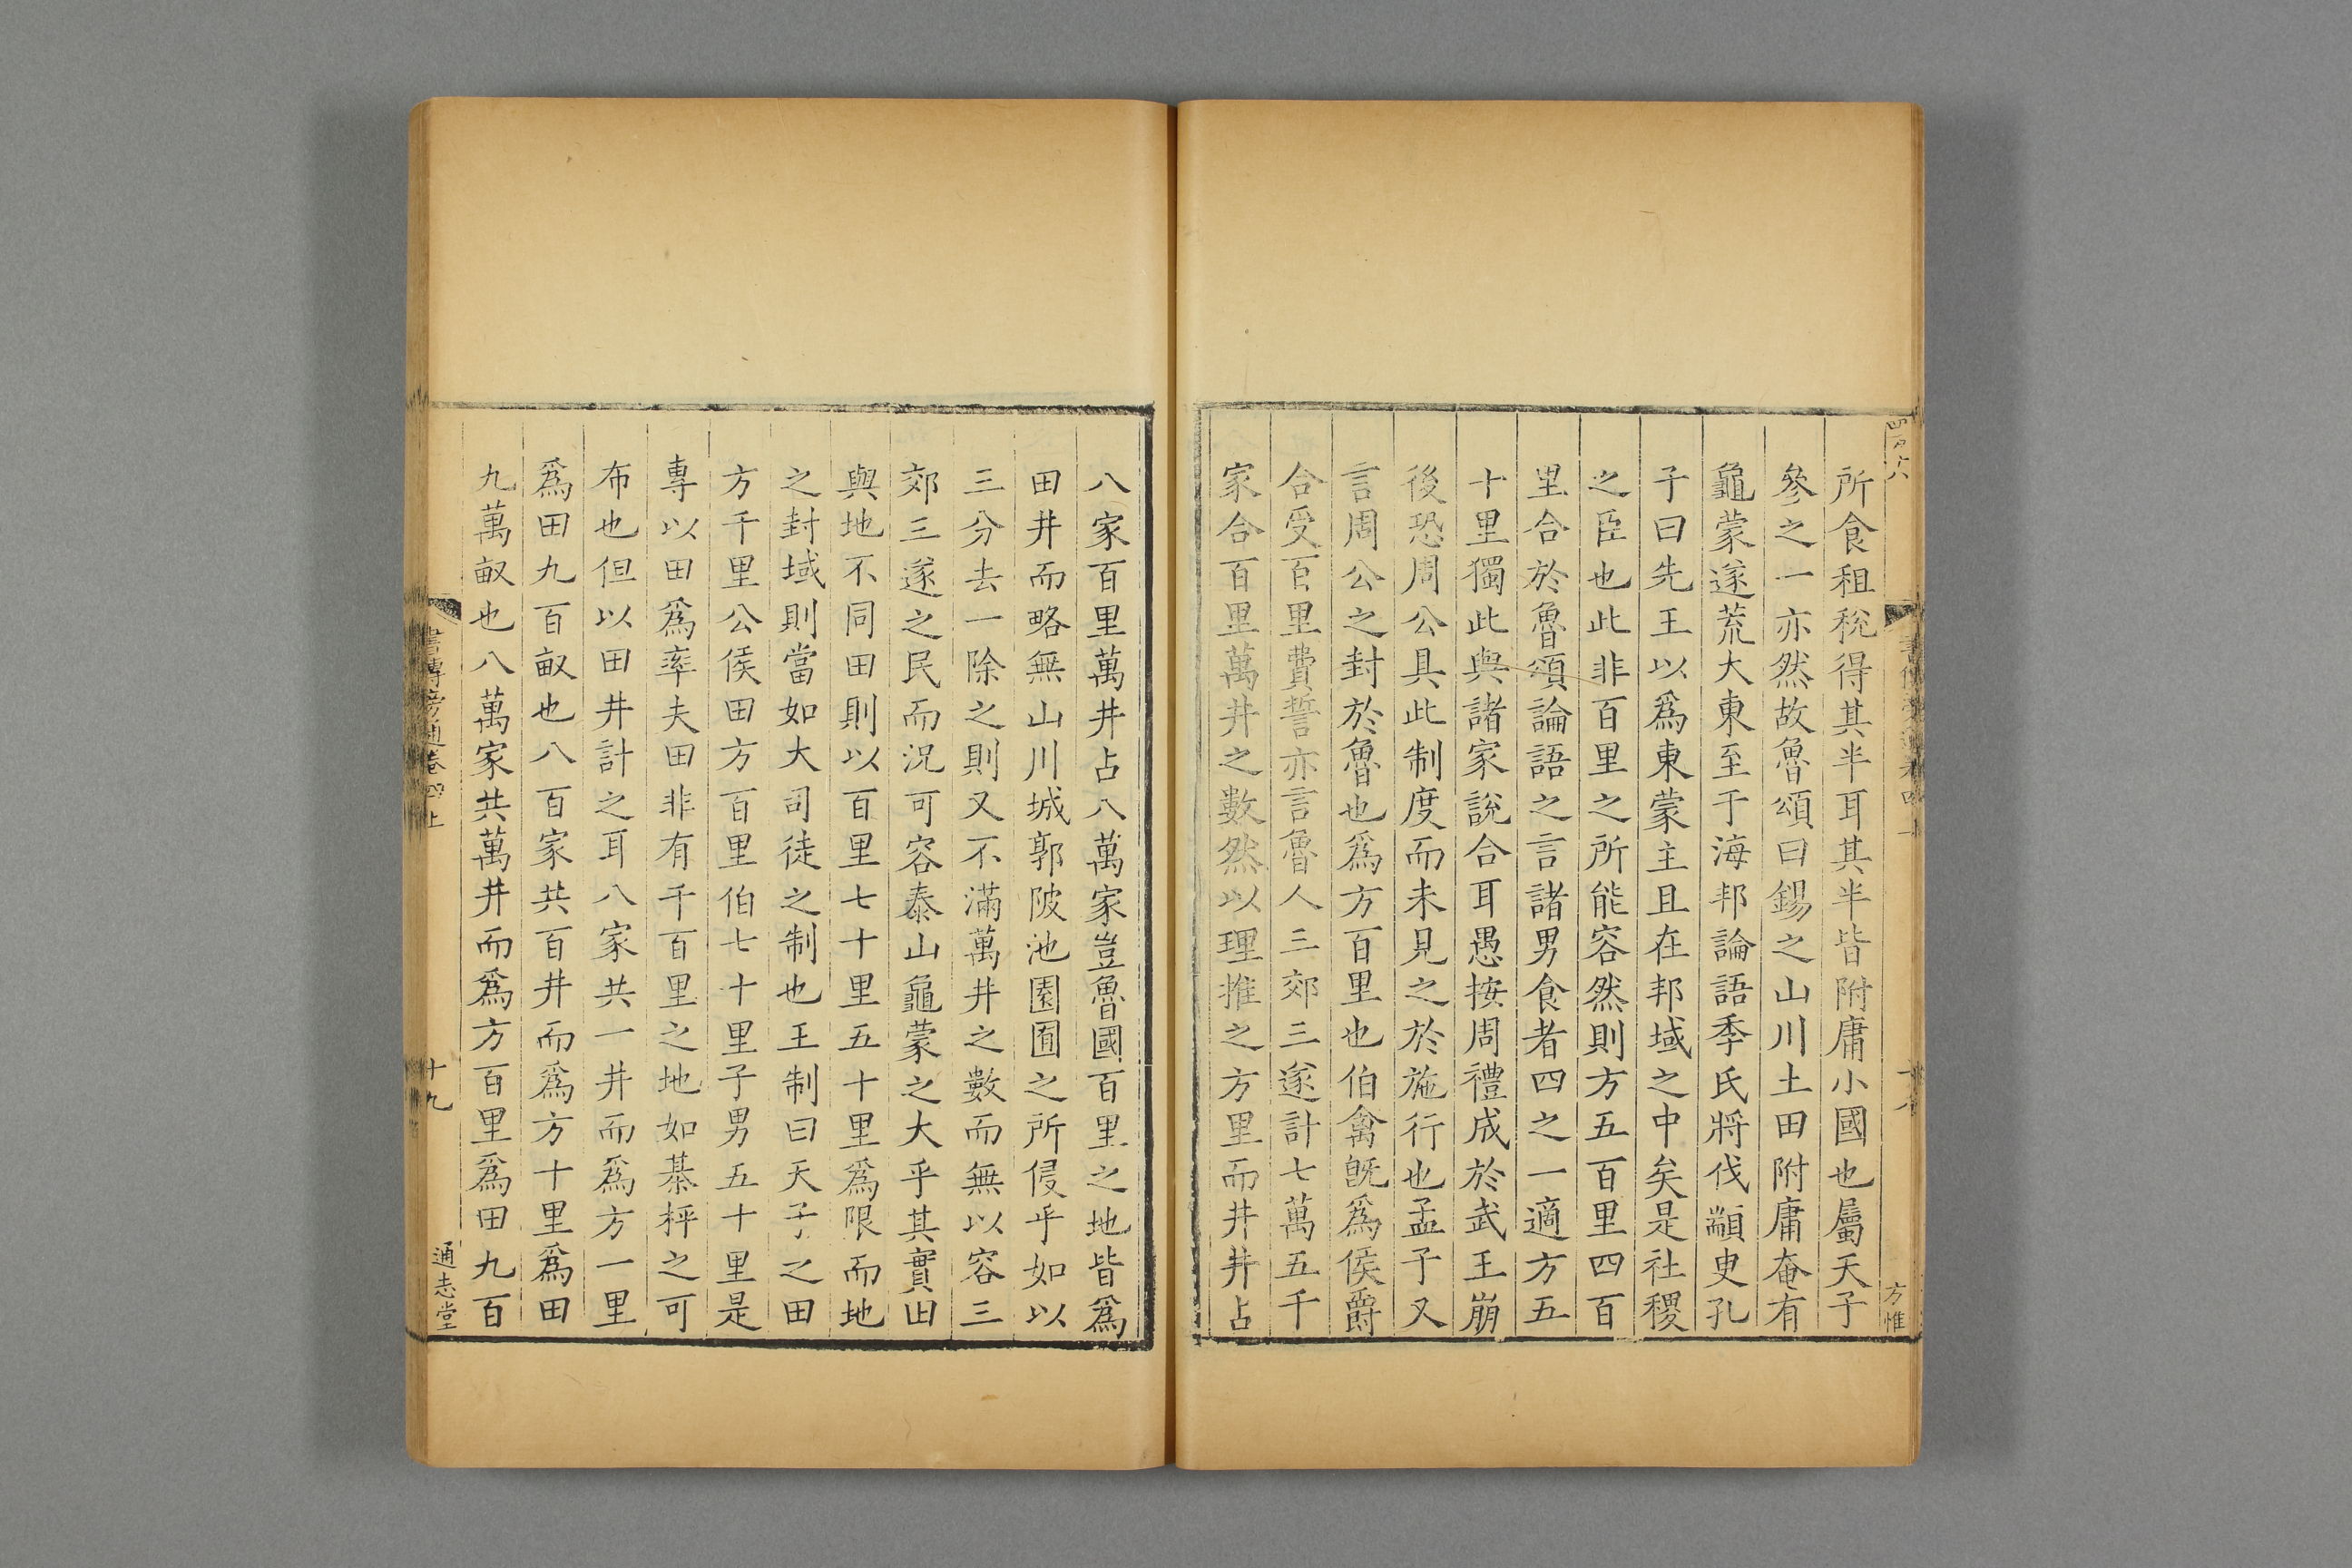 所食租稅得其半耳其半皆附庸小國也屬天子
參之一亦然故魯頌曰錫之山川土田附庸奄有
龜蒙遂荒大東至于海邦論語季氏將伐顓臾孔
子曰先王以爲東蒙主且在邦域之中矣是社稷
之臣也此非百里之所能容然則方五百里四百
里合於魯頌論語之言諸男食者四之一適方五
十里獨此與諸家說合耳愚按周禮成於武王崩
後恐周公具此制度而未見之於施行也孟子又
言周公之封於魯也爲方百里也伯禽旣爲侯爵
合受百里費誓亦言魯人三郊三遂計七萬五千
家合百里萬井之數然以理推之方里而井井占
八家百里萬井占八萬家豈魯國百里之地皆爲
田井而略無山川城郭陂池園囿之所侵乎如以
三分去一除之則又不滿萬井之數而無以容三
郊三遂之民而況可容泰山龜蒙之大乎其實田
與地不同田則以百里七十里五十里爲限而地
之封域則當如大司徒之制也王制曰天子之田
方千里公侯田方百里伯七十里子男五十里是
專以田爲率夫田非有千百里之地如棊枰之可
布也但以田井計之耳八家共一井而爲方一里
爲田九百畝也八百家共百井而爲方十里爲田
九萬畝也八萬家共萬井而爲方百里爲田九百
書傳旁通卷四上
十九
通志堂